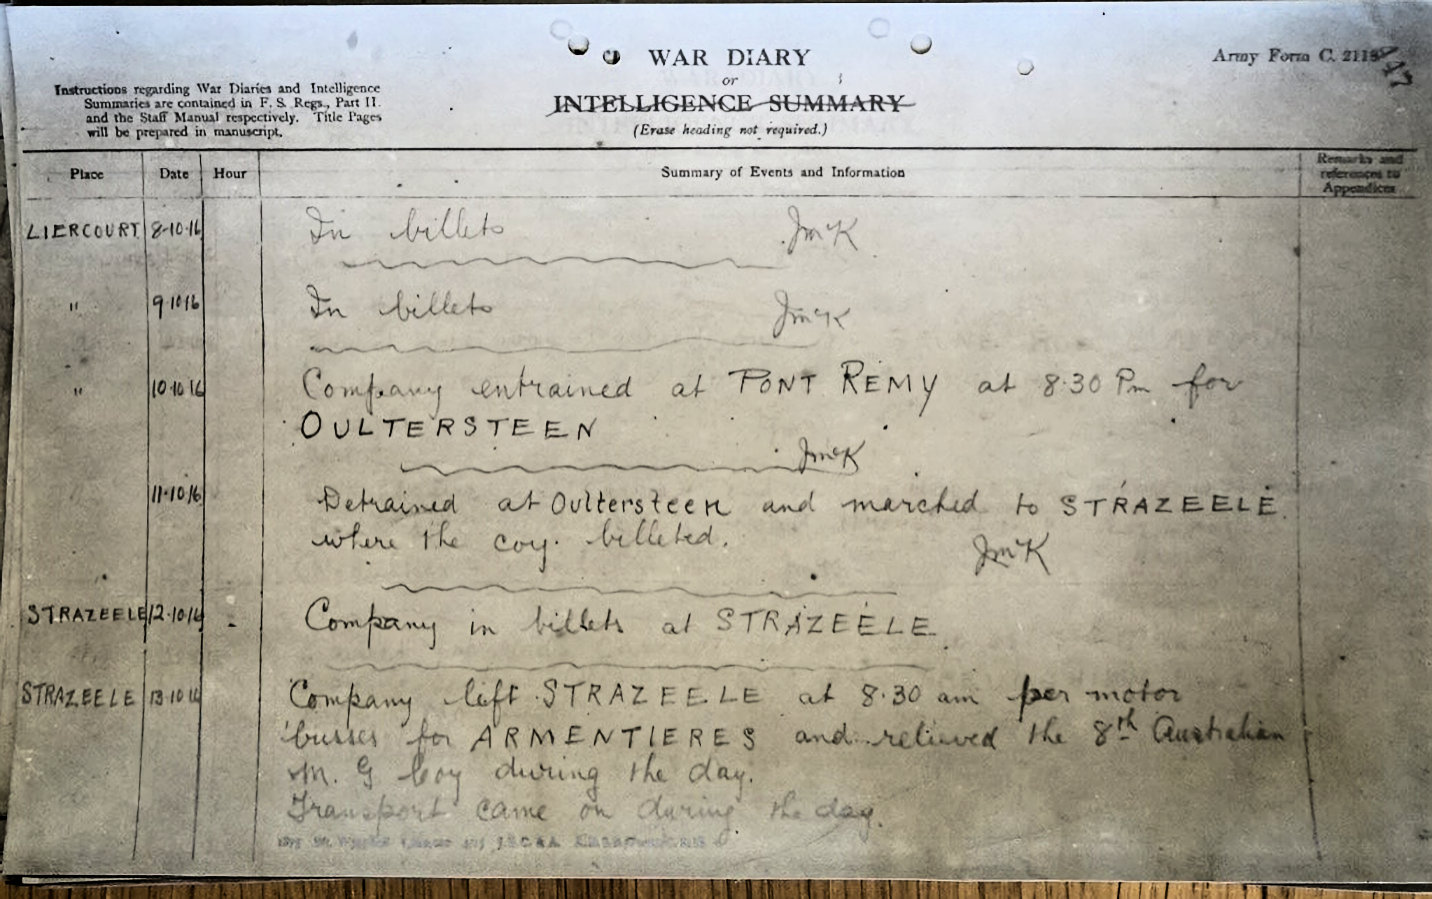 WAR DIARY
or
INTELLIGENCE SUMMARY
(Erase heading not required.)
Army Form C. 2118
Instructions regarding War Diaries and Intelligence
Summaries are contained in F. S. Regs., Part II.
and the Staff Manual respectively. Title Pages
will be prepared in manuscript.
Place Date Hour Summary of Events and Information Remarks and
references to
Appendices
LIERCOURT 8-10-16 In billets JMcK
" 9.10.16 In billets JMcK
" 10.10.16 Company entrained at PONT REMY at 8.30 Pm for
OULTERSTEEN
JMcK
11.10.16 Detrained at Oultersteen and marched to STRAZEELE
where the coy. billeted.
JMcK
STRAZEELE 12.10.16 Company in billets at STRAZEELE
STRAZEELE 13.10.16 Company left STRAZEELE at 8.30 am per motor
busses for ARMENTIERES and relieved the 8th Australian
M. G Coy during the day.
Transport came on during the day.